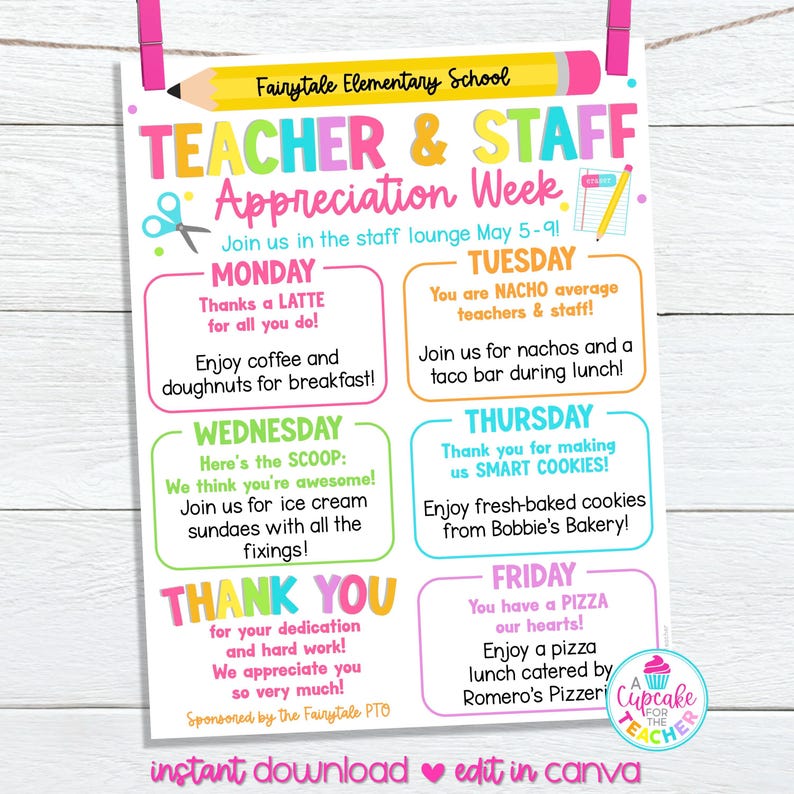 Fairytale Elementary School
TEACHER & STAFF
Appreciation Week
eraser
Join us in the staff lounge May 5-9!
MONDAY
Thanks a LATTE
for all you do!
Enjoy coffee and
doughnuts for breakfast!
TUESDAY
You are NACHO average
teachers & staff!
Join us for nachos and a
taco bar during lunch!
WEDNESDAY
Here's the SCOOP:
We think you're awesome!
Join us for ice cream
sundaes with all the
fixings!
THURSDAY
Thank you for making
us SMART COOKIES!
Enjoy fresh-baked cookies
from Bobbie's Bakery!
THANK YOU
for your dedication
and hard work!
We appreciate you
so very much!
Sponsored by the Fairytale PTO
FRIDAY
You have a PIZZA
our hearts!
Enjoy a pizza
lunch catered by
Romero's
A
Cupcake
FOR THE
TEACHER
instant download ♥ edit in canva